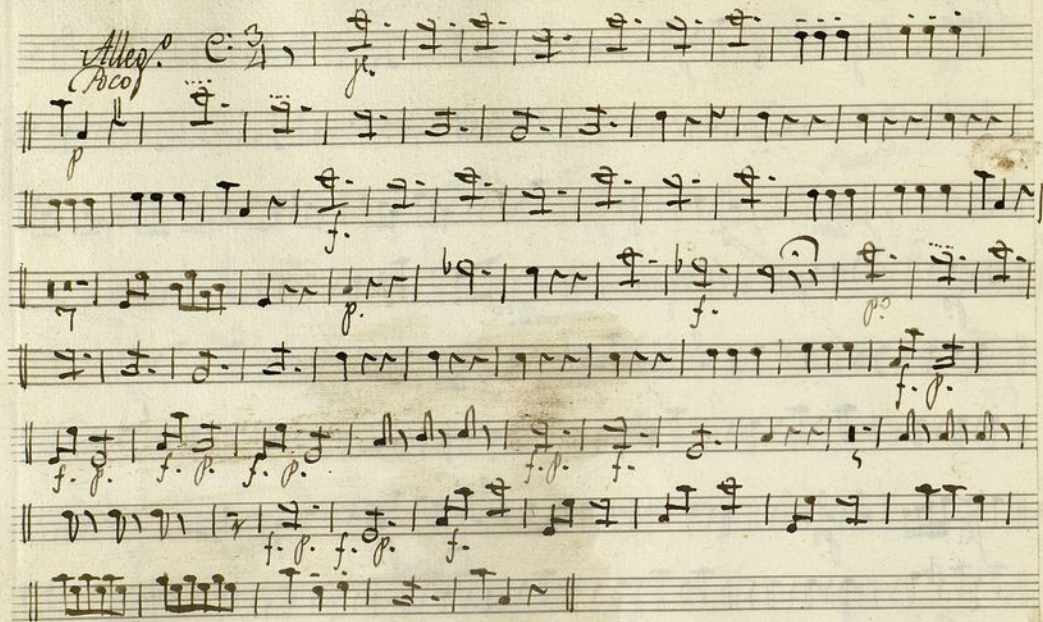 Alleg.º 3/4
Poco f.
p
f.
7 p. f. p.º
f. p.
f. p. f. p. f. p. f. p. f. 5
f. p. f. p. f.